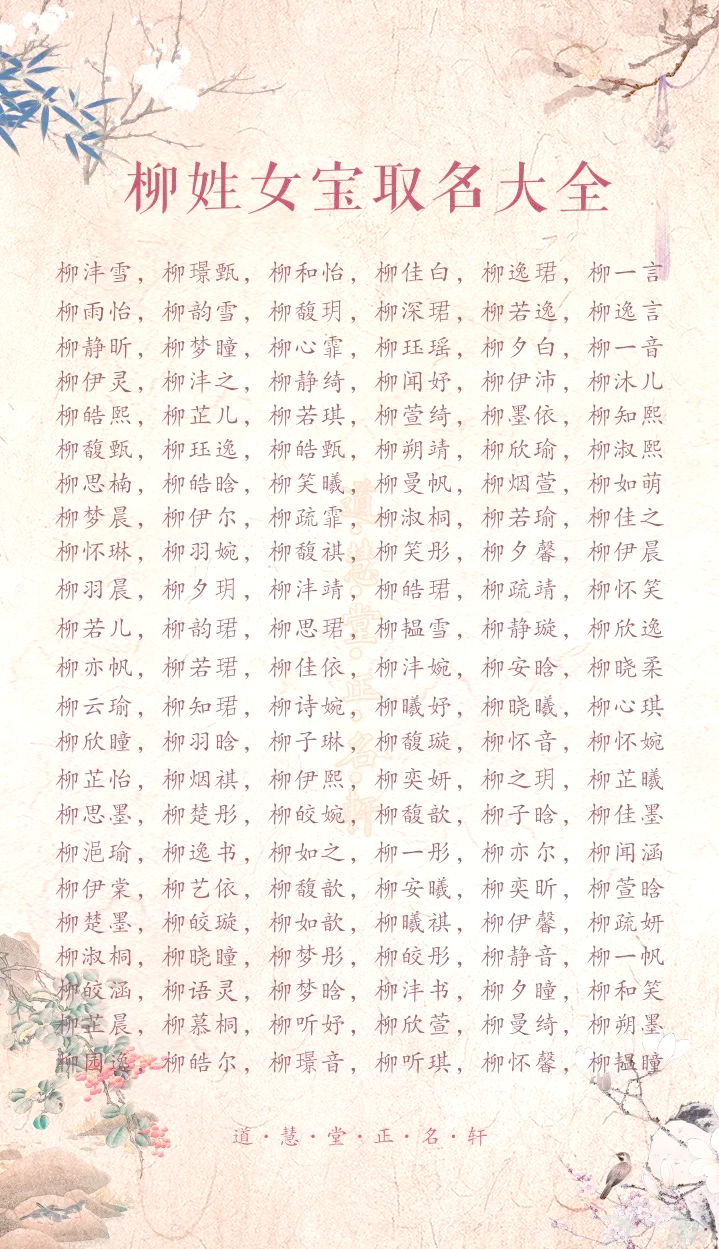 柳姓女宝取名大全
柳沣雪，柳璟甄，柳和怡，柳佳白，柳逸珺，柳一言
柳雨怡，柳韵雪，柳馥玥，柳深珺，柳若逸，柳逸言
柳静昕，柳梦瞳，柳心霏，柳珏瑶，柳夕白，柳一音
柳伊灵，柳沣之，柳静绮，柳闻妤，柳伊沛，柳沐儿
柳皓熙，柳芷儿，柳若琪，柳萱绮，柳墨依，柳知熙
柳馥甄，柳珏逸，柳皓甄，柳朔靖，柳欣瑜，柳淑熙
柳思楠，柳皓晗，柳笑曦，柳曼帆，柳烟萱，柳如萌
柳梦晨，柳伊尔，柳疏霏，柳淑桐，柳若瑜，柳佳之
柳怀琳，柳羽婉，柳馥祺，柳笑彤，柳夕馨，柳伊晨
柳羽晨，柳夕玥，柳沣靖，柳皓珺，柳疏靖，柳怀笑
柳若儿，柳韵珺，柳思珺，柳韫雪，柳静璇，柳欣逸
柳亦帆，柳若珺，柳佳依，柳沣婉，柳安晗，柳晓柔
柳云瑜，柳知珺，柳诗婉，柳曦妤，柳晓曦，柳心琪
柳欣瞳，柳羽晗，柳子琳，柳馥璇，柳怀音，柳怀婉
柳芷怡，柳烟祺，柳伊熙，柳奕妍，柳之玥，柳芷曦
柳思墨，柳楚彤，柳皎婉，柳馥歆，柳子晗，柳佳墨
柳浥瑜，柳逸书，柳如之，柳一彤，柳亦尔，柳闻涵
柳伊棠，柳艺依，柳馥歆，柳安曦，柳奕昕，柳萱晗
柳楚墨，柳皎璇，柳如歆，柳曦祺，柳伊馨，柳疏妍
柳淑桐，柳晓瞳，柳梦彤，柳皎彤，柳静音，柳一帆
柳皎涵，柳语灵，柳梦晗，柳沣书，柳夕瞳，柳和笑
柳芷晨，柳慕桐，柳听妤，柳欣萱，柳曼绮，柳朔墨
柳园逸，柳皓尔，柳璟音，柳听琪，柳怀馨，柳韫瞳
道·慧·堂·正·名·轩
道·慧·堂·正·名·轩